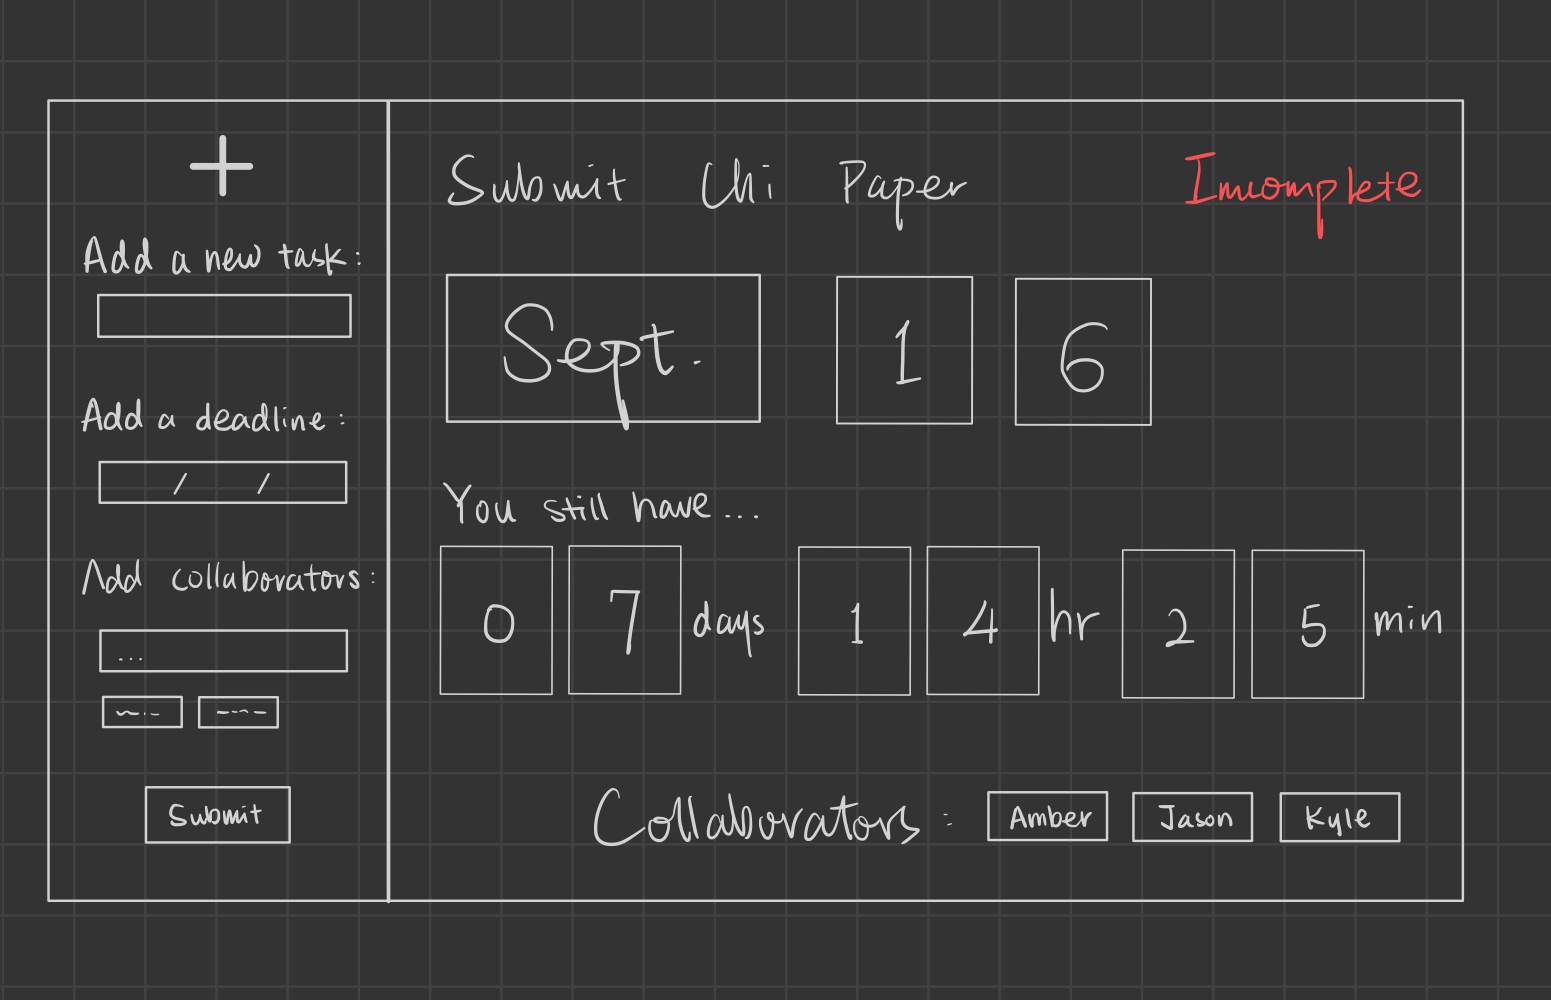 +
Add a new task:
Add a deadline:
/ /
Add collaborators:
...
Submit
Submit Chi Paper
Incomplete
Sept. 1 6
You still have...
0 7 days 1 4 hr 2 5 min
Collaborators: Amber Jason Kyle